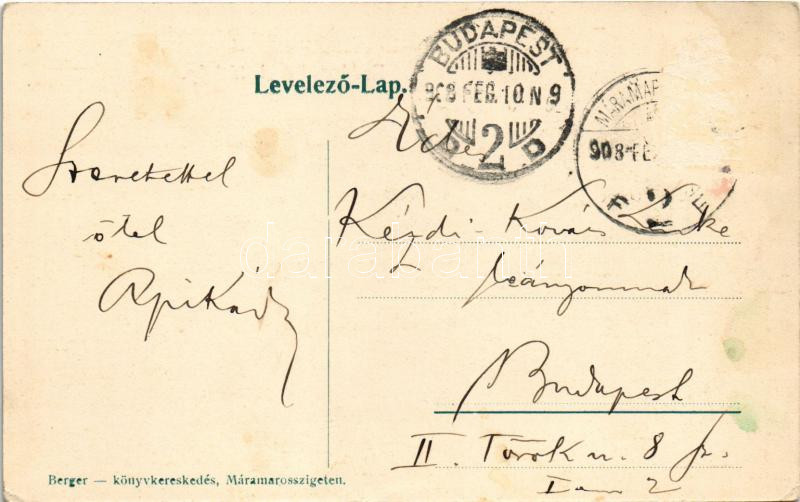 Levelező-Lap.
BUDAPEST
908 FEB.10.N 9
2
D
MÁRAMAR
908-FE
Szeretettel
ölel
Apikád
Édes
Kézdi-Kovács Linke
leányomnak
Budapest
II. Török u. 8 sz.
I em 2
Berger — könyvkereskedés, Máramarosszigeten.
darabanth